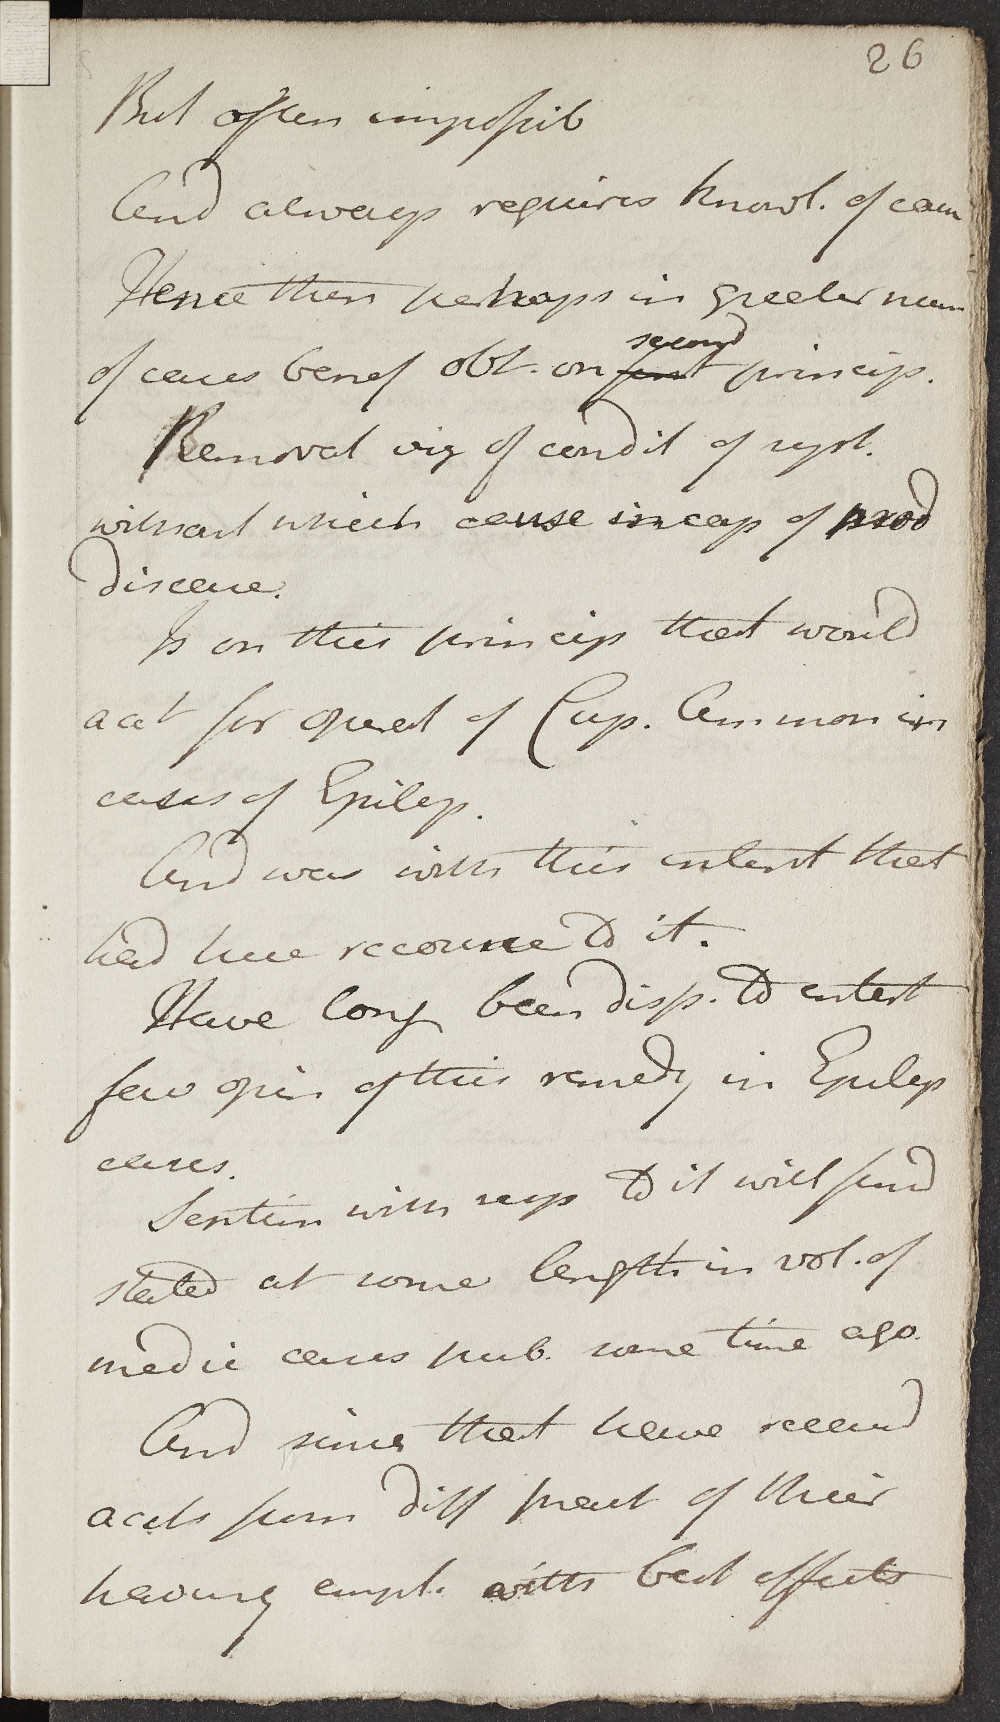 26
But often impossib
And always requires knowl. of caus
Hence then perhaps in greater num
of cases benef obt. on second first princip.
Removal viz of condit of syst.
without which cause incap of prod
disease.
Is on this princip that would
acct for operat of Cup. Ammon in
cases of Epilep.
And was with this intent that
had here recourse to it.
Have long been disp. to entert
fav opin of this remedy in Epilep
cases.
Sentim with resp to it will find
stated at some length in vol. of
medic cases pub. some time ago.
And since that have receivd
accts from diff pract of their
having empl. with best effects